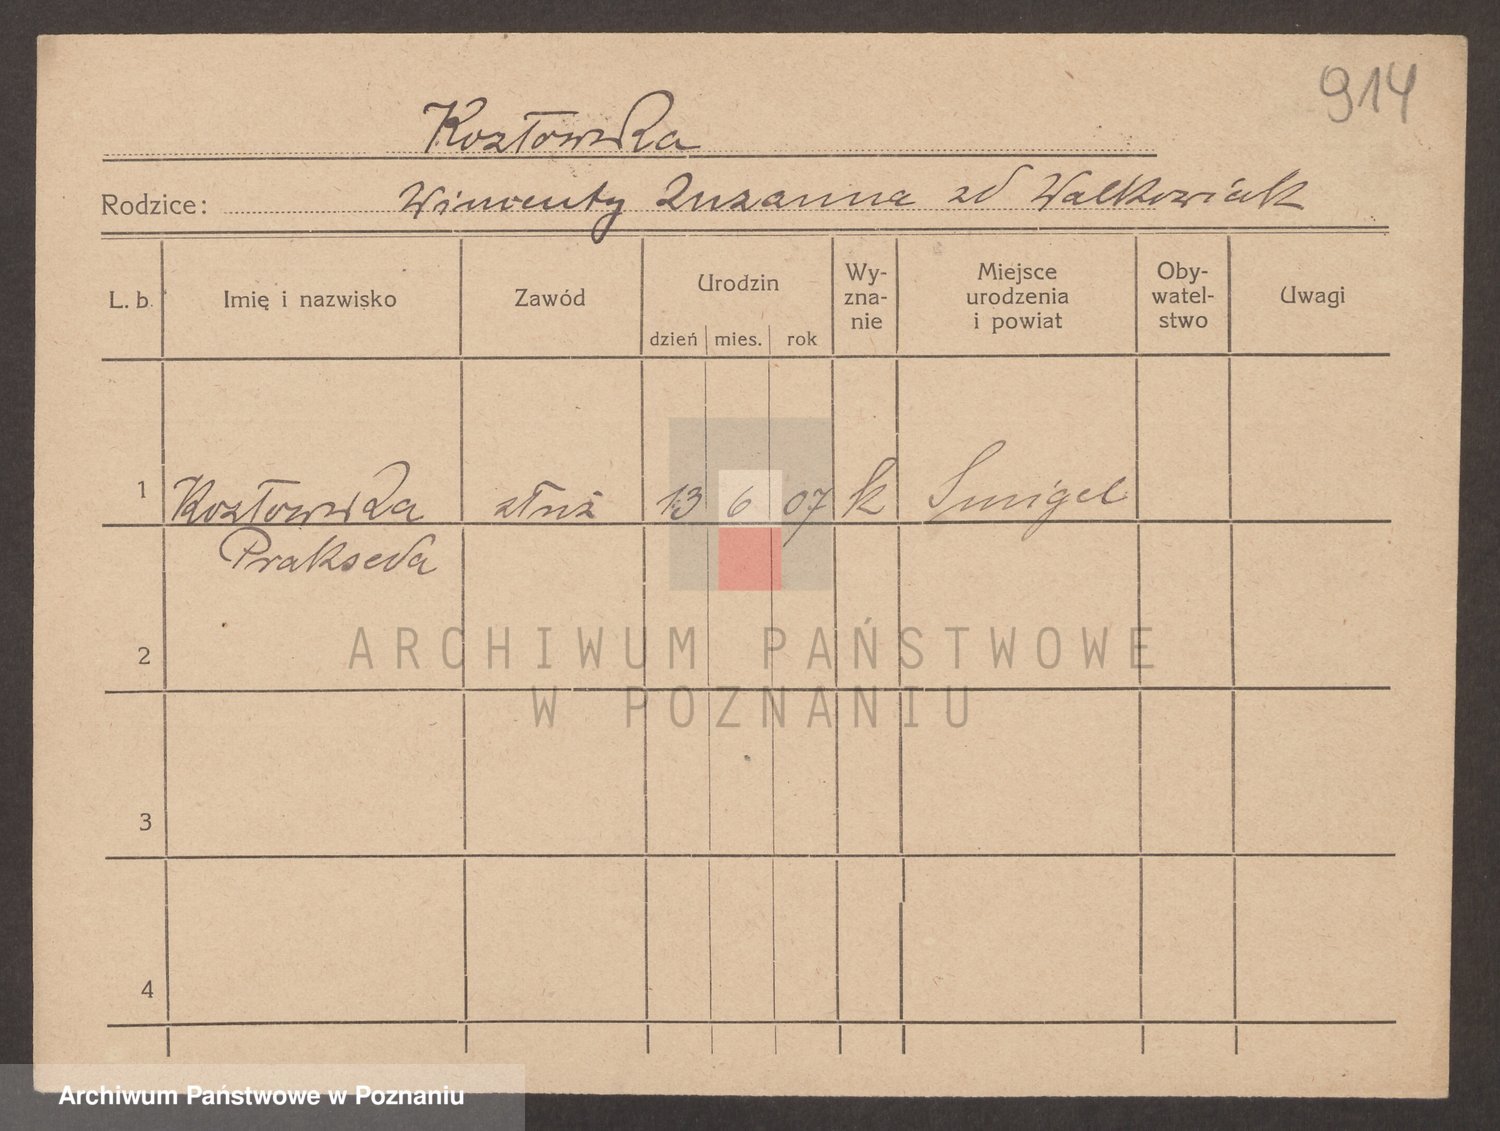 914
Kozłowska
Rodzice: Wincenty Zuzanna zd Walkowiak
L. b. Imię i nazwisko Zawód Urodzin dzień mies. rok Wy-zna-nie Miejsce urodzenia i powiat Oby-watel-stwo Uwagi
1 Kozłowska służ 13 6 07 k Smigel
Prakseda
2
3
4
ARCHIWUM PAŃSTWOWE
W POZNANIU
Archiwum Państwowe w Poznaniu